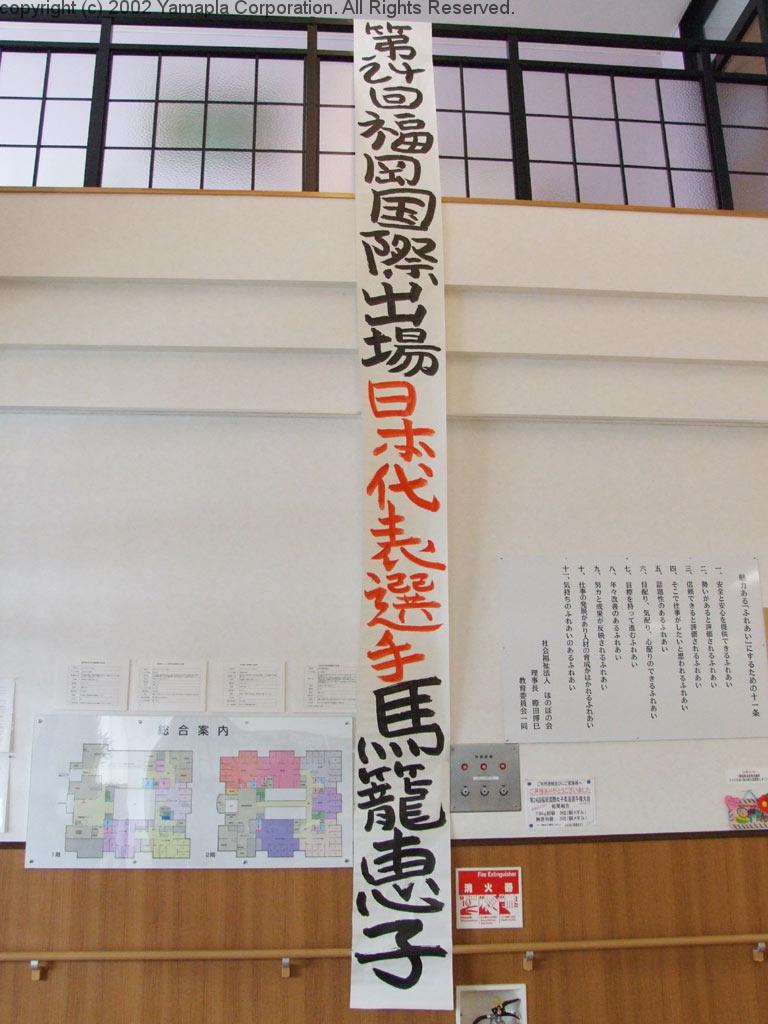 copyright (c) 2002 Yamapla Corporation. All Rights Reserved.
第24回福岡国際出場日本代表選手馬籠恵子
魅力ある「ふれあい」にするための十一条
一、安全と安心を提供できるふれあい
二、勢いがあると評価されるふれあい
三、信頼できると評価されるふれあい
四、そこで仕事がしたいと思われるふれあい
五、話題性のあるふれあい
六、目配り、気配り、心配りのできるふれあい
七、目標を持って進むふれあい
八、年々改善のあるふれあい
九、努力と成果が反映されるふれあい
十、仕事の発展があり人材の育成がはかれるふれあい
十一、気持ちのふれあいのあるふれあい
社会福祉法人 ほのぼの会
理事長
教育委員会一同
総合案内
1階
2階
ご声援ありがとうございました
第24回福岡国際女子柔道選手権大会
Fire Extinguisher
消火器